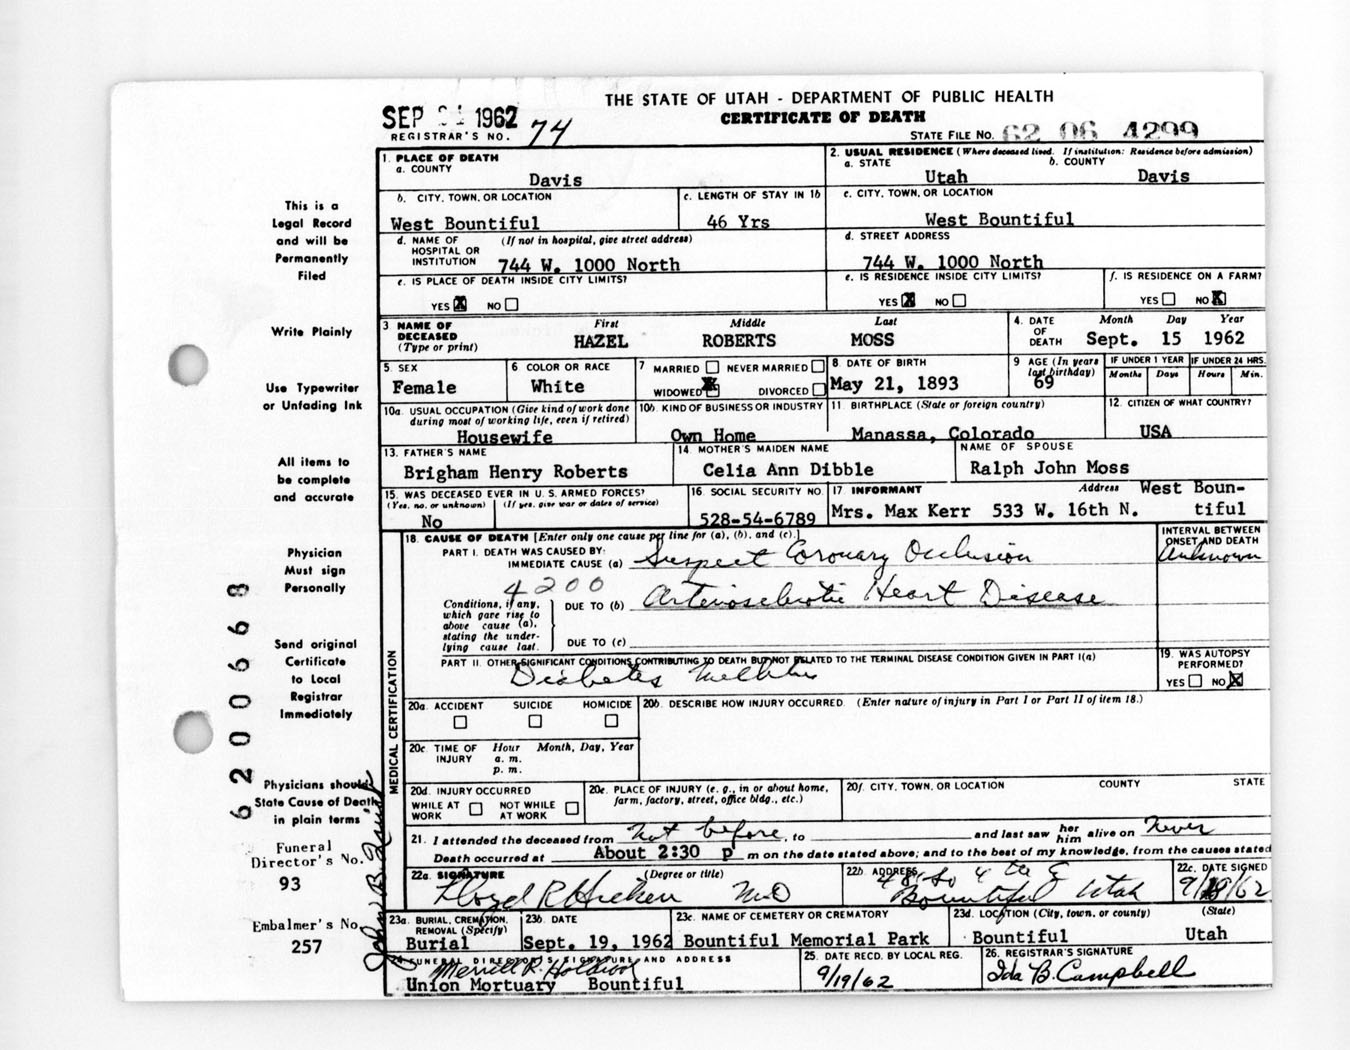 THE STATE OF UTAH - DEPARTMENT OF PUBLIC HEALTH
CERTIFICATE OF DEATH
SEP 1962
REGISTRAR'S NO. 74
STATE FILE NO. 62 06 4299
This is a
Legal Record
and will be
Permanently
Filed
Write Plainly
Use Typewriter
or Unfading Ink
All items to
be complete
and accurate
Physician
Must sign
Personally
Send original
Certificate
to Local
Registrar
Immediately
Physicians should
State Cause of Death
in plain terms
Funeral
Director's No.
93
Embalmer's No.
257
6200668
1. PLACE OF DEATH
a. COUNTY
Davis
2. USUAL RESIDENCE (Where deceased lived. If institution: Residence before admission)
a. STATE
Utah
b. COUNTY
Davis
b. CITY, TOWN, OR LOCATION
West Bountiful
c. LENGTH OF STAY IN 1b
46 Yrs
c. CITY, TOWN, OR LOCATION
West Bountiful
d. NAME OF HOSPITAL OR INSTITUTION (If not in hospital, give street address)
744 W. 1000 North
d. STREET ADDRESS
744 W. 1000 North
e. IS PLACE OF DEATH INSIDE CITY LIMITS?
YES X NO
e. IS RESIDENCE INSIDE CITY LIMITS?
YES X NO
f. IS RESIDENCE ON A FARM?
YES NO X
3 NAME OF DECEASED (Type or print)
First Middle Last
HAZEL ROBERTS MOSS
4. DATE OF DEATH
Month Day Year
Sept. 15 1962
5. SEX
Female
6 COLOR OR RACE
White
7 MARRIED NEVER MARRIED
WIDOWED X DIVORCED
8. DATE OF BIRTH
May 21, 1893
9 AGE (In years last birthday)
69
IF UNDER 1 YEAR
Months Days
IF UNDER 24 HRS.
Hours Min.
10a. USUAL OCCUPATION (Give kind of work done during most of working life, even if retired)
Housewife
10b. KIND OF BUSINESS OR INDUSTRY
Own Home
11 BIRTHPLACE (State or foreign country)
Manassa, Colorado
12. CITIZEN OF WHAT COUNTRY?
USA
13. FATHER'S NAME
Brigham Henry Roberts
14. MOTHER'S MAIDEN NAME
Celia Ann Dibble
NAME OF SPOUSE
Ralph John Moss
15. WAS DECEASED EVER IN U. S. ARMED FORCES?
(Yes, no, or unknown) (If yes, give war or dates of service)
No
16. SOCIAL SECURITY NO.
528-54-6789
17 INFORMANT Address
Mrs. Max Kerr 533 W. 16th N. West Boun-
tiful
18. CAUSE OF DEATH [Enter only one cause per line for (a), (b), and (c).]
PART I. DEATH WAS CAUSED BY:
IMMEDIATE CAUSE (a) Suspect Coronary Occlusion
INTERVAL BETWEEN ONSET AND DEATH
Unknown
4200
Conditions, if any, which gave rise to above cause (a), stating the underlying cause last.
DUE TO (b) Arteriosclrotic Heart Disease
DUE TO (c)
PART II. OTHER SIGNIFICANT CONDITIONS CONTRIBUTING TO DEATH BUT NOT RELATED TO THE TERMINAL DISEASE CONDITION GIVEN IN PART I(a)
Diabetes Mellitus
19. WAS AUTOPSY PERFORMED?
YES NO X
MEDICAL CERTIFICATION
20a. ACCIDENT SUICIDE HOMICIDE
20b. DESCRIBE HOW INJURY OCCURRED. (Enter nature of injury in Part I or Part II of item 18.)
20c. TIME OF INJURY
Hour Month, Day, Year
a. m.
p. m.
20d. INJURY OCCURRED
WHILE AT WORK NOT WHILE AT WORK
20e. PLACE OF INJURY (e. g., in or about home, farm, factory, street, office bldg., etc.)
20f. CITY, TOWN, OR LOCATION COUNTY STATE
21. I attended the deceased from not before, to and last saw her him alive on never
Death occurred at About 2:30 p m on the date stated above; and to the best of my knowledge, from the causes stated
22a. SIGNATURE (Degree or title)
Lloyd R Hicken MD
22b. ADDRESS
48 So 4 th E
Bountiful Utah
22c. DATE SIGNED
9/18/62
23a. BURIAL, CREMATION, REMOVAL (Specify)
Burial
23b. DATE
Sept. 19, 1962
23c. NAME OF CEMETERY OR CREMATORY
Bountiful Memorial Park
23d. LOCATION (City, town, or county) (State)
Bountiful Utah
24. FUNERAL DIRECTOR'S SIGNATURE AND ADDRESS
Merrill R. Holbrook
Union Mortuary Bountiful
25. DATE RECD. BY LOCAL REG.
9/19/62
26. REGISTRAR'S SIGNATURE
Ida B. Campbell